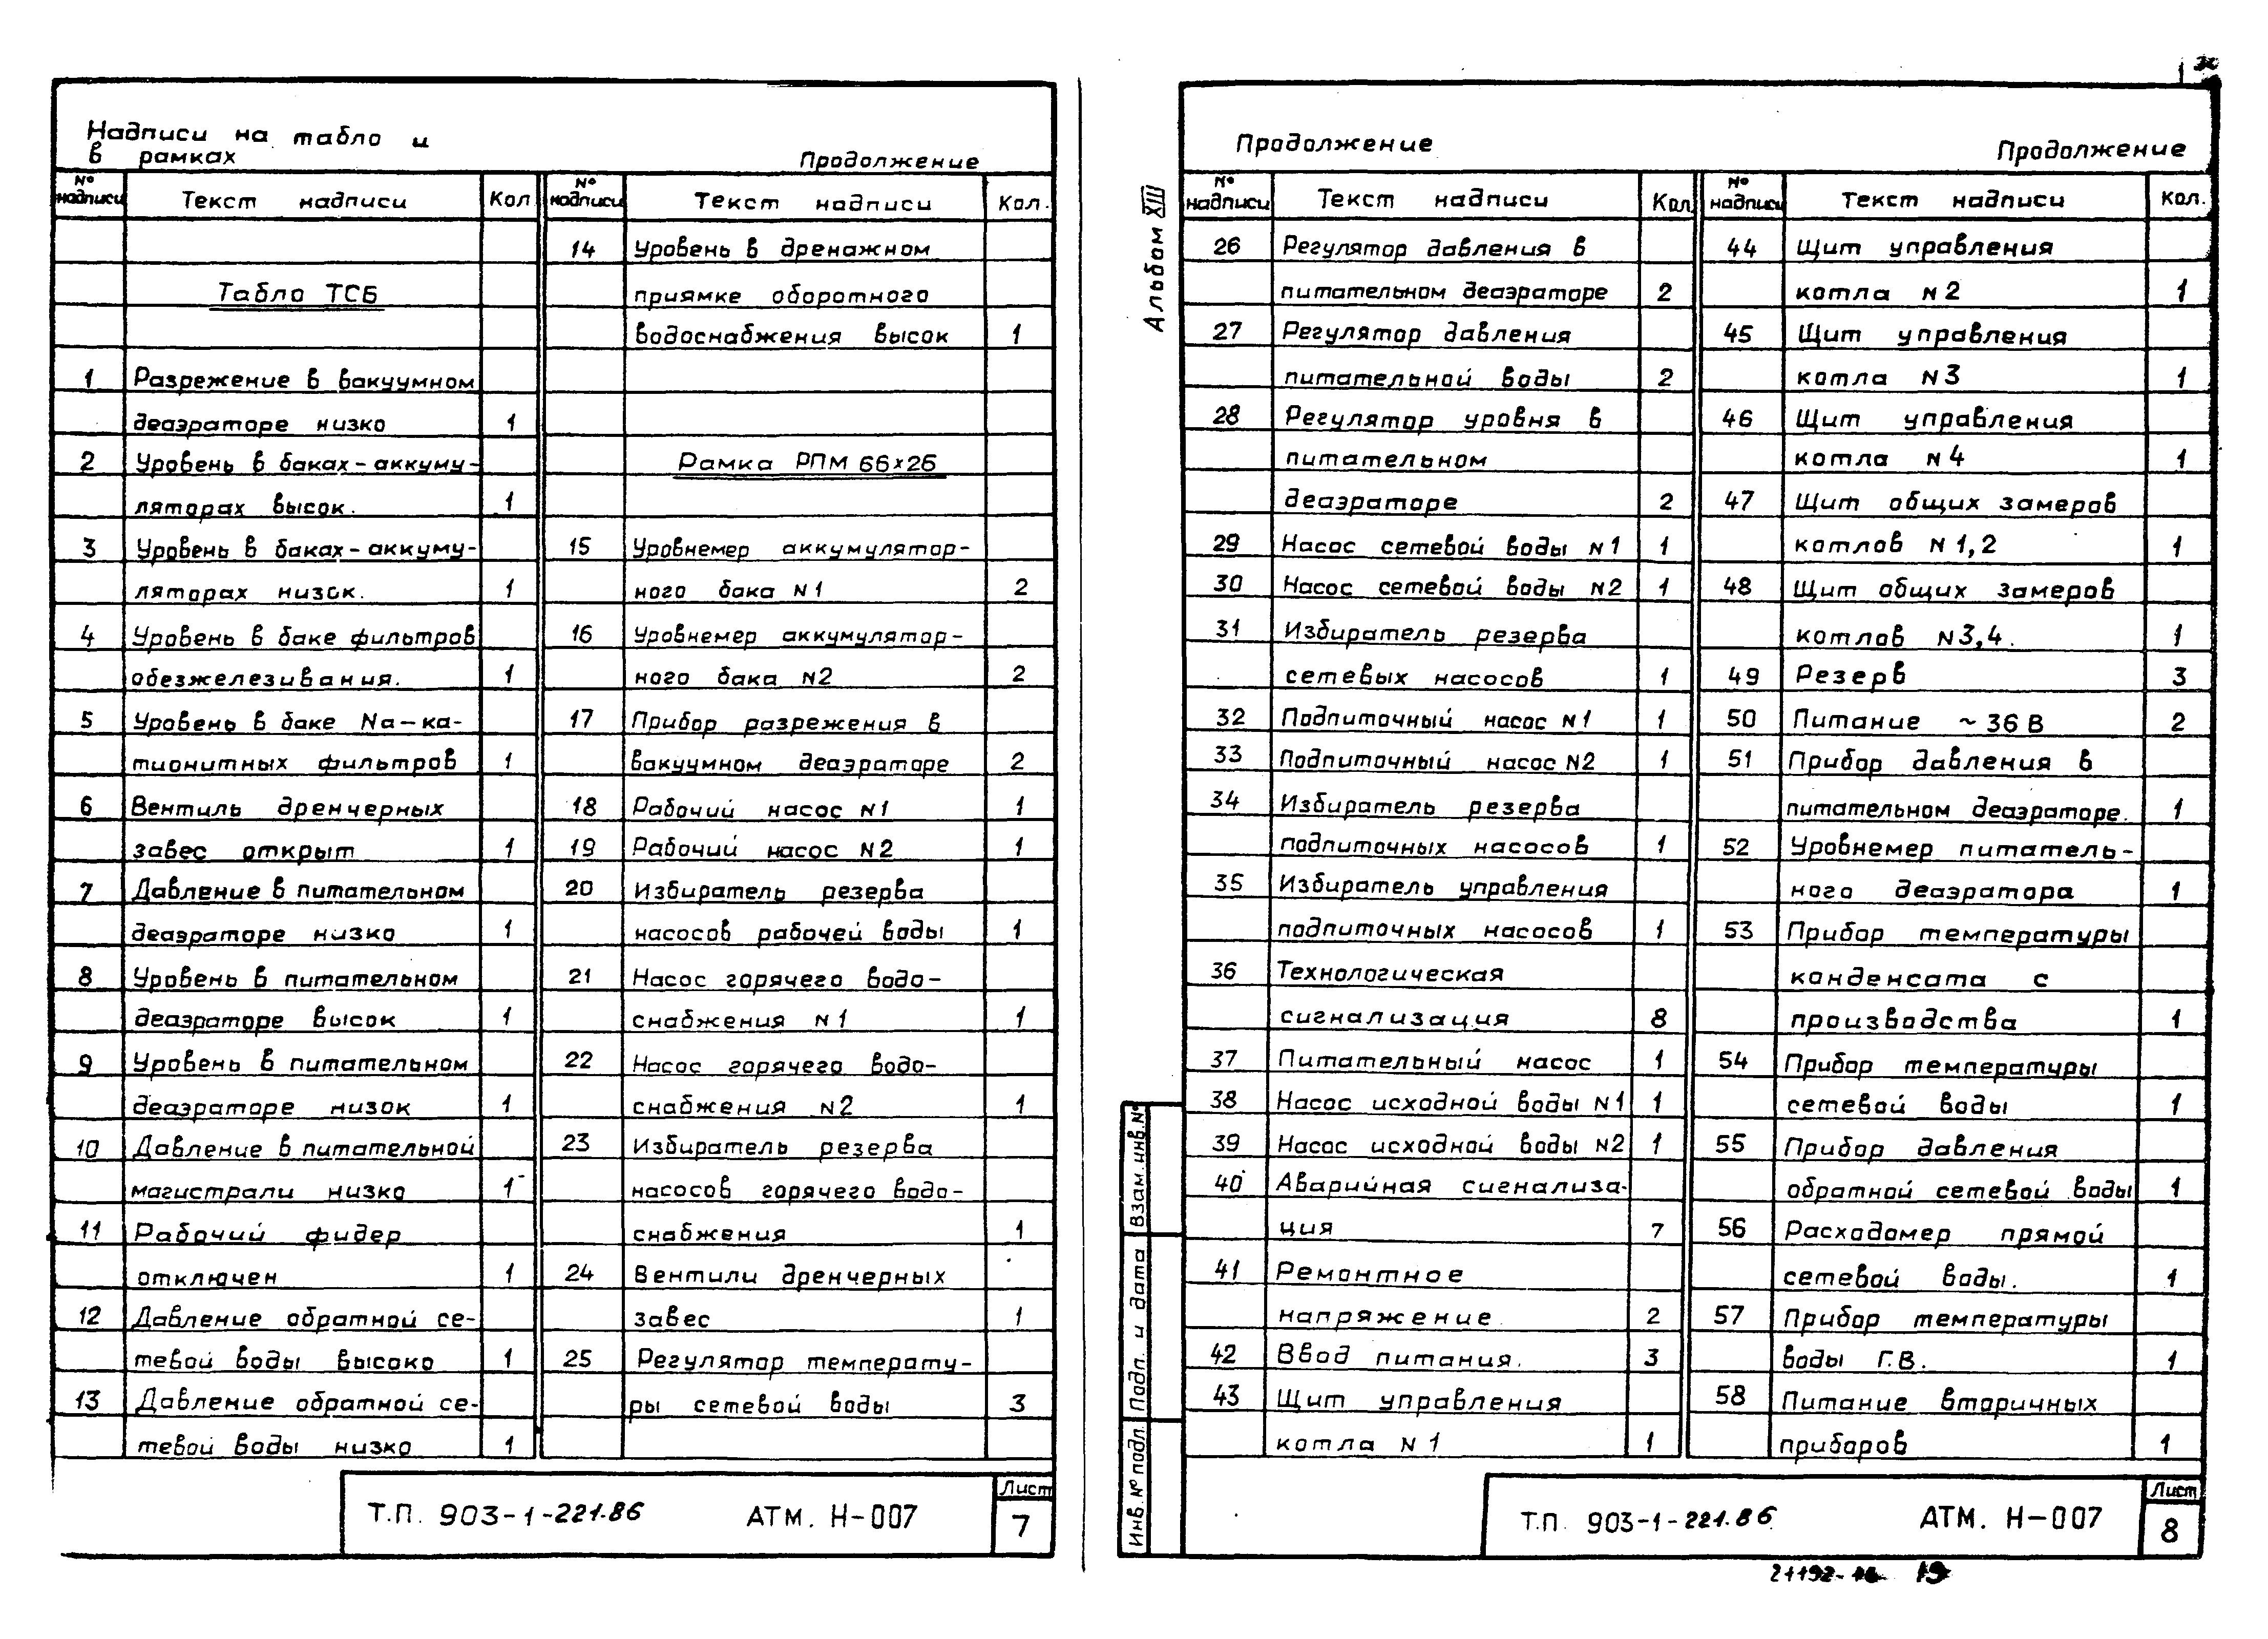 Надписи на табло и
в рамках
Продолжение
№ надписи Текст надписи Кол.
Табло ТСБ
1 Разрежение в вакуумном
деаэраторе низко 1
2 Уровень в баках-аккуму-
ляторах высок. 1
3 Уровень в баках-аккуму-
ляторах низок. 1
4 Уровень в баке фильтров
обезжелезивания. 1
5 Уровень в баке Na-ка-
тионитных фильтров 1
6 Вентиль дренчерных
завес открыт 1
7 Давление в питательном
деаэраторе низко 1
8 Уровень в питательном
деаэраторе высок 1
9 Уровень в питательном
деаэраторе низок 1
10 Давление в питательной
магистрали низко 1
11 Рабочий фидер
отключен 1
12 Давление обратной се-
тевой воды высоко 1
13 Давление обратной се-
тевой воды низко 1
№ надписи Текст надписи Кол.
14 Уровень в дренажном
приямке оборотного
водоснабжения высок 1
Рамка РПМ 66х26
15 Уровнемер аккумулятор-
ного бака N1 2
16 Уровнемер аккумулятор-
ного бака N2 2
17 Прибор разрежения в
вакуумном деаэраторе 2
18 Рабочий насос N1 1
19 Рабочий насос N2 1
20 Избиратель резерва
насосов рабочей воды 1
21 Насос горячего водо-
снабжения N1 1
22 Насос горячего водо-
снабжения N2 1
23 Избиратель резерва
насосов горячего водо-
снабжения 1
24 Вентили дренчерных
завес 1
25 Регулятор температу-
ры сетевой воды 3
Т.П. 903-1-221.86 АТМ. Н-007
Лист
7
Альбом XIII
Продолжение
Продолжение
№ надписи Текст надписи Кол
26 Регулятор давления в
питательном деаэраторе 2
27 Регулятор давления
питательной воды 2
28 Регулятор уровня в
питательном
деаэраторе 2
29 Насос сетевой воды N1 1
30 Насос сетевой воды N2 1
31 Избиратель резерва
сетевых насосов 1
32 Подпиточный насос N1 1
33 Подпиточный насос N2 1
34 Избиратель резерва
подпиточных насосов 1
35 Избиратель управления
подпиточных насосов 1
36 Технологическая
сигнализация 8
37 Питательный насос 1
38 Насос исходной воды N1 1
39 Насос исходной воды N2 1
40 Аварийная сигнализа-
ция 7
41 Ремонтное
напряжение 2
42 Ввод питания. 3
43 Щит управления
котла N1 1
№ надписи Текст надписи Кол.
44 Щит управления
котла N2 1
45 Щит управления
котла N3 1
46 Щит управления
котла N4 1
47 Щит общих замеров
котлов N1,2 1
48 Щит общих замеров
котлов N3,4. 1
49 Резерв 3
50 Питание ~36В 2
51 Прибор давления в
питательном деаэраторе. 1
52 Уровнемер питатель-
ного деаэратора 1
53 Прибор температуры
конденсата с
производства 1
54 Прибор температуры
сетевой воды 1
55 Прибор давления
обратной сетевой воды 1
56 Расходомер прямой
сетевой воды. 1
57 Прибор температуры
воды Г.В. 1
58 Питание вторичных
приборов 1
Инв. № подл. Подп. и дата Взам. инв. №
Т.П. 903-1-221.86 АТМ. Н-007
Лист
8
19